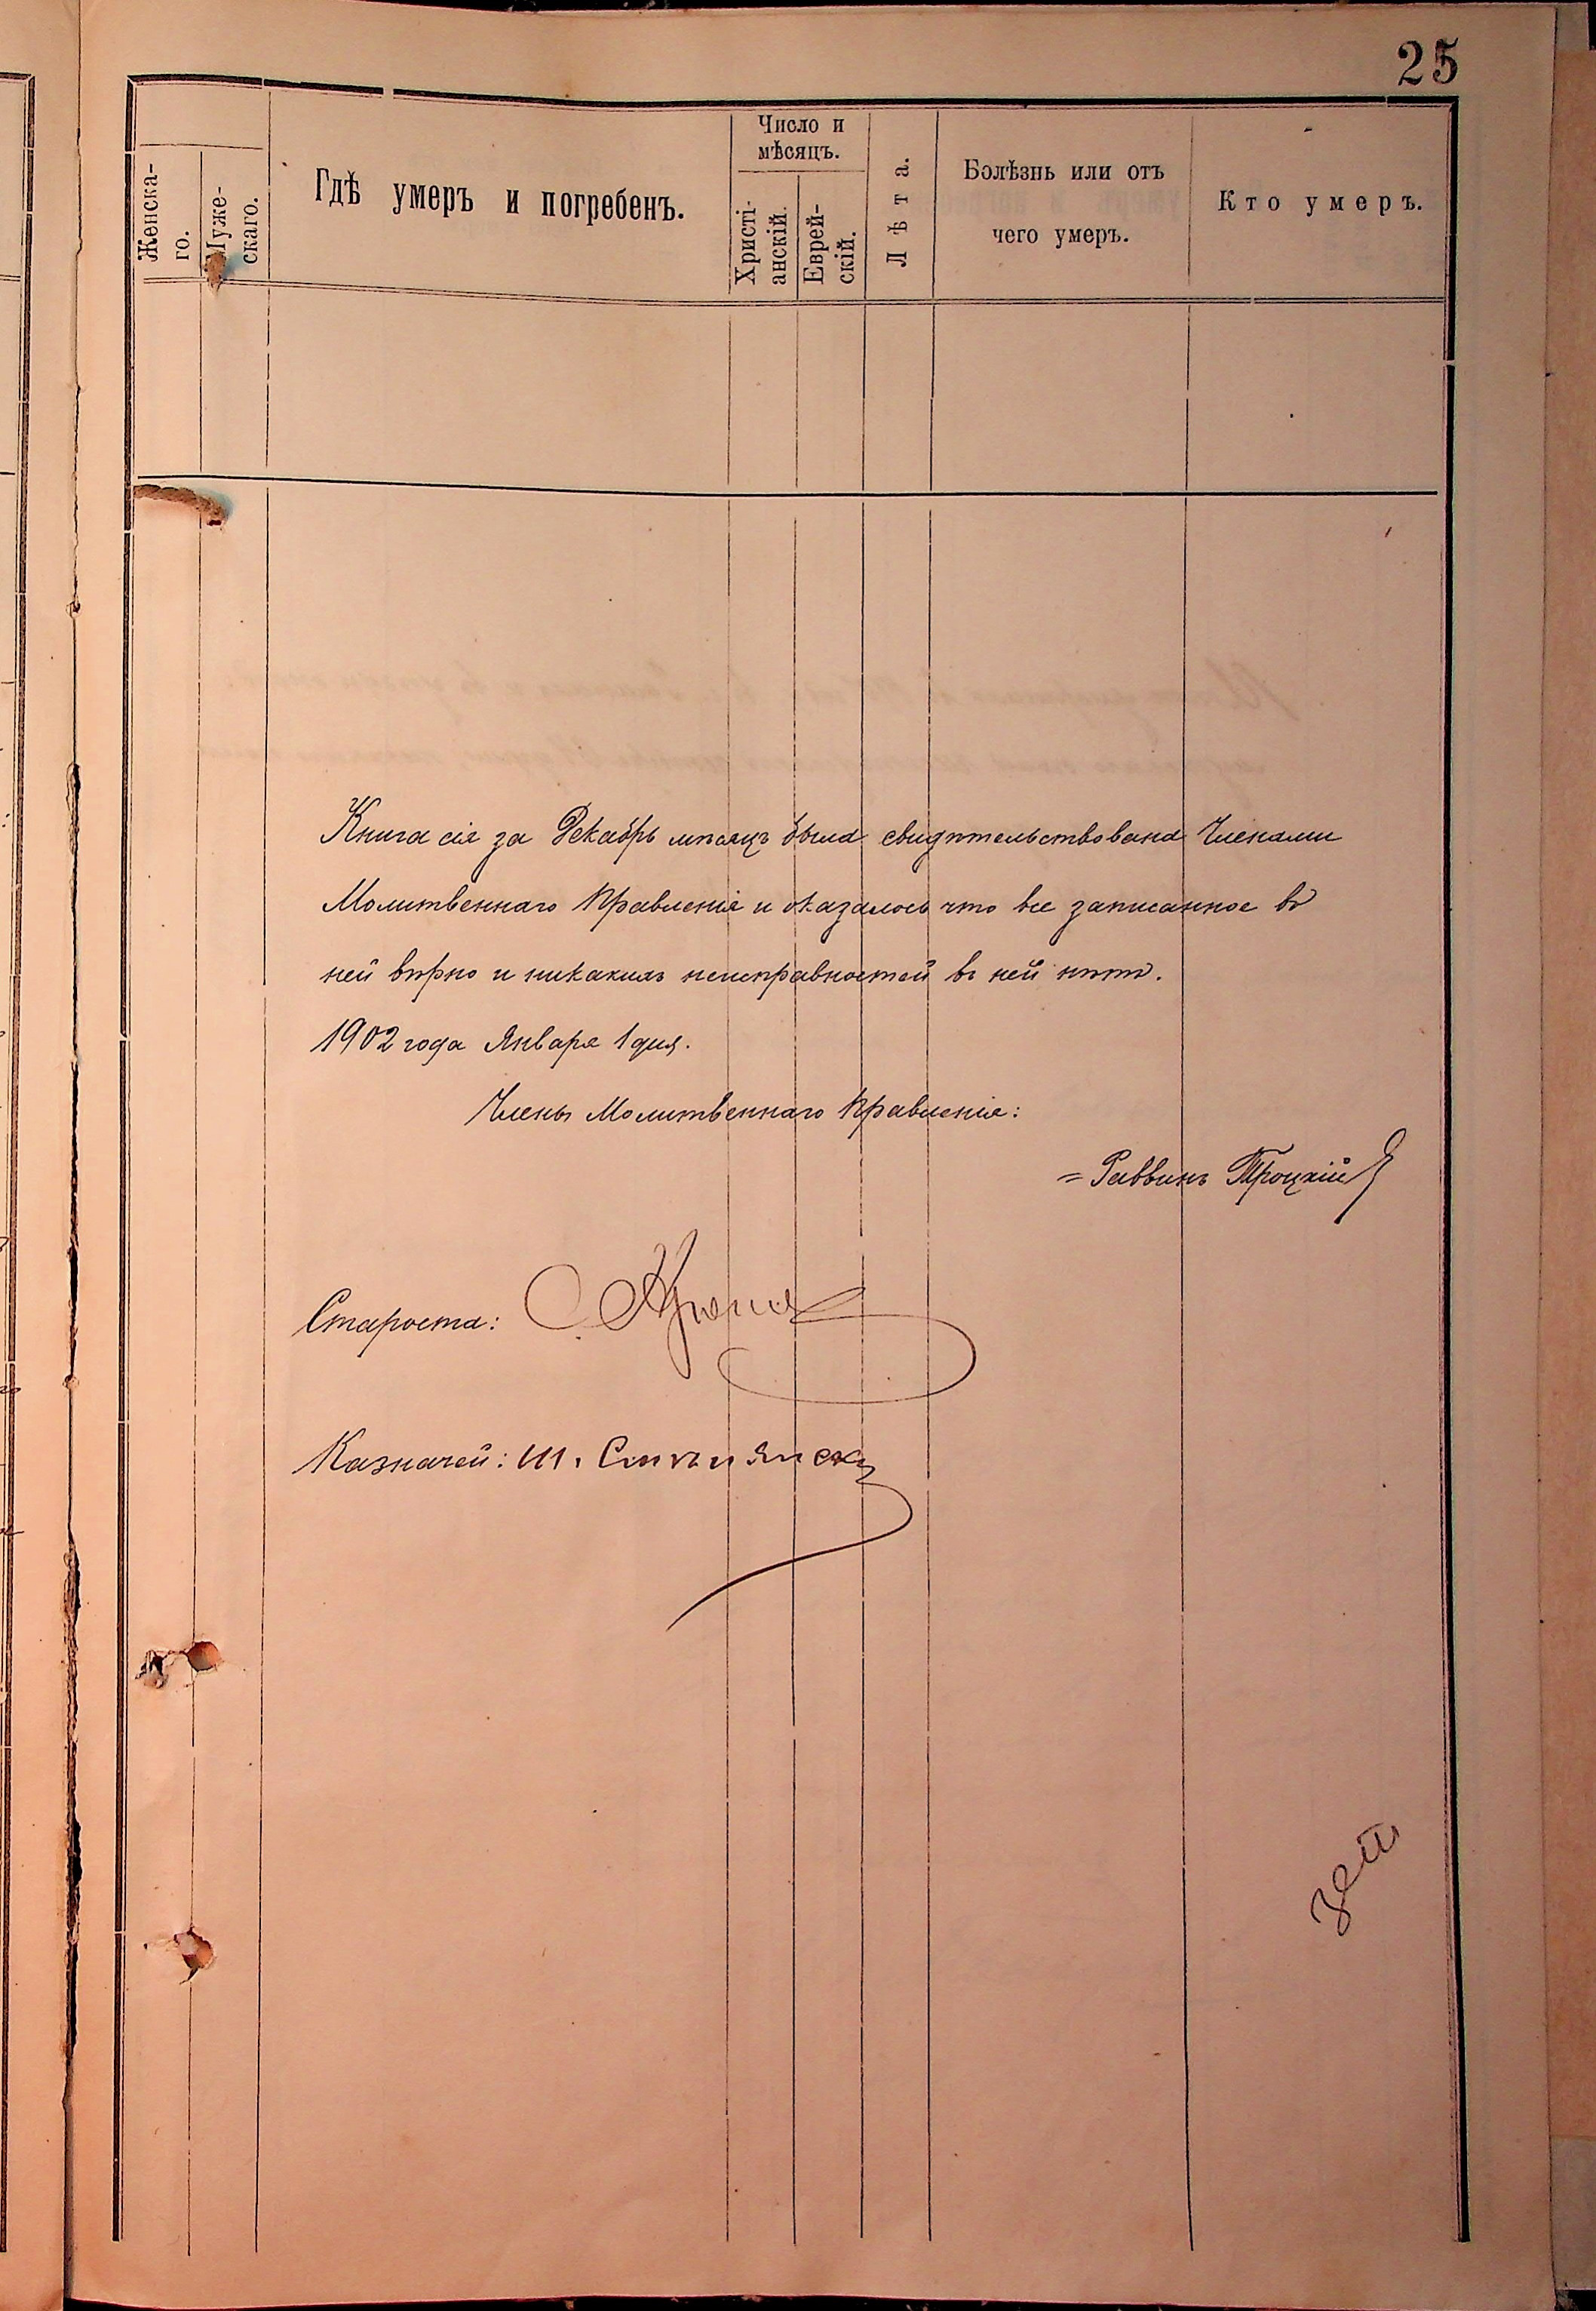 25
Женска-
го.
Муже-
скаго.
Гдѣ умеръ и погребенъ.
Число и
мѣсяцъ.
Христі-
анскій.
Еврей-
скій.
Лѣта.
Болѣзнь или отъ
чего умеръ.
Кто умеръ.
Книга сія за Декабрь мѣсяцъ была свидѣтельствована Членами
Молитвеннаго Правленія и оказалось что все записанное въ
ней вѣрно и никакихъ неисправностей въ ней нѣтъ.
1902 года Января 1 дня.
Члены Молитвеннаго Правленія:
= Раввинъ Троцкій
Староста:
Казначей: Ш.